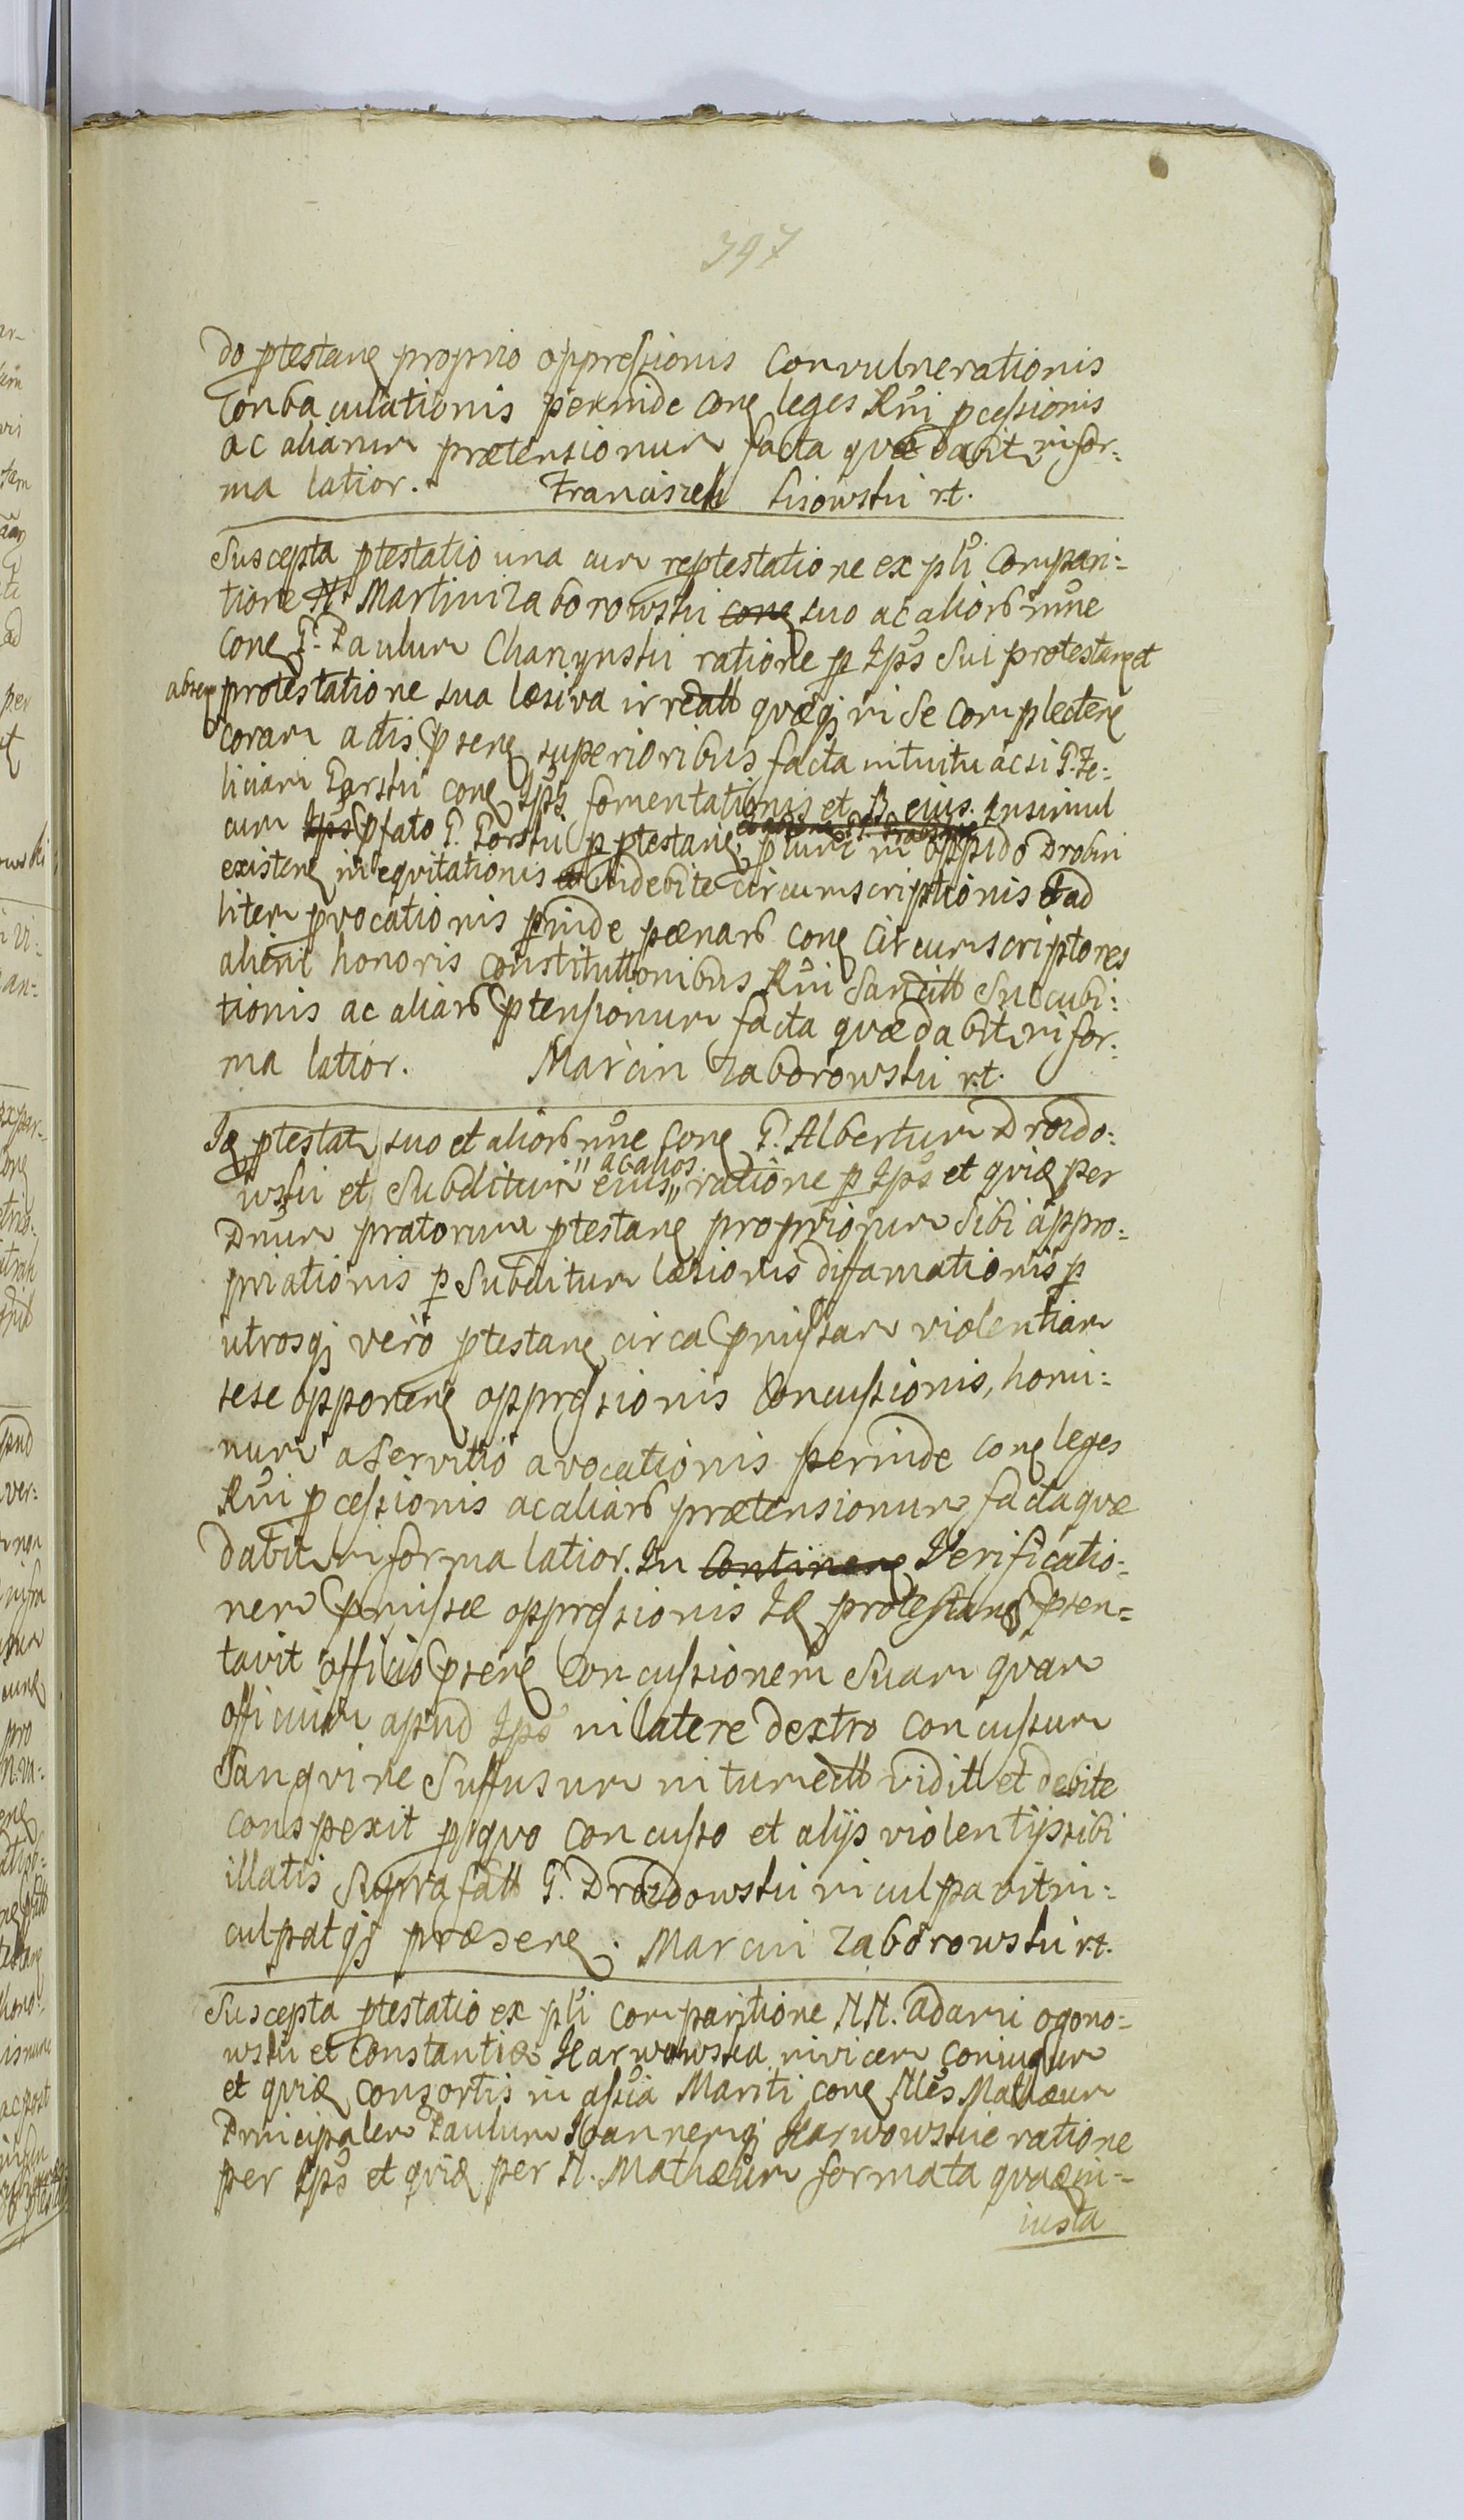 397
do ptestane proprio oppressionis convulnerationis
conbaculationis perinde cone leges Rni pcessionis
ac aliarum prætensionum facta quæ dabit in for:
ma latior. Franciszek Lisowski r.t.
Suscepta ptestatio una cum reptestatione ex pli compari:
tione N. Martini Zaborowski cone suo ac aliorum nne
cone G. Paulum ratione p Ips sui protestane et
absen protestatione sua læsiva irreali quæqj in se complectere
coram actis psene superioribus facta intuitu acsi G. Fe:
liciani Gorski cone Ips fomentationis et B. eius. Insimul
cum Ips pfato G. Gorski p ptestane pluri in oppido Drobin
existene inequitationis et indebite circumscriptionis et ad
litem pvocationis pinde pænarum cone circumscriptores
alieni honoris constitutionibus Rni sancitt succubi:
tionis ac aliarum ptensionum facta quæ dabit in for:
ma latior. Marcin Zaborowski r.t.
Id ptestat suo et aliorum nne cone G. Albertum Drozdo:
wski et subditum eius ratione p Ips et quid per
Dnum pratorum ptestane propriorum sibi appro:
priationis p subditum læsionis diffamationis p
utrosqj vero ptestane circa pmissam violentiam
sese opponene oppressionis concussionis, homi:
num a servitio avocationis perinde cone leges
Rni pcessionis ac aliarum prætensionum facta quæ
dabit in forma latior. In Continene Verificatio:
nem pmissæ oppressionis Id protestans psen:
tavit officio psene concussionem suam quam
officium apud Ips in latere dextro concussum
sanguine suffusum intumectt vidit et debite
conspexit p quo concusso et alijs violentijs sibi
illatis suprafatt G. Drozdowski inculpavit in:
culpatqj præsene. Marcin Zaborowski r.t.
Suscepta ptestatio ex pli comparitione NN. Adami Ogono:
wski et Constantiæ Karwowska invicem coniugum
et quid consortis in assia Mariti cone Nles Mathæum
Principalem Paulum Joannemqj Karwowskie ratione
per Ips et quid per N. Mathæum formata quadem in:
iusta